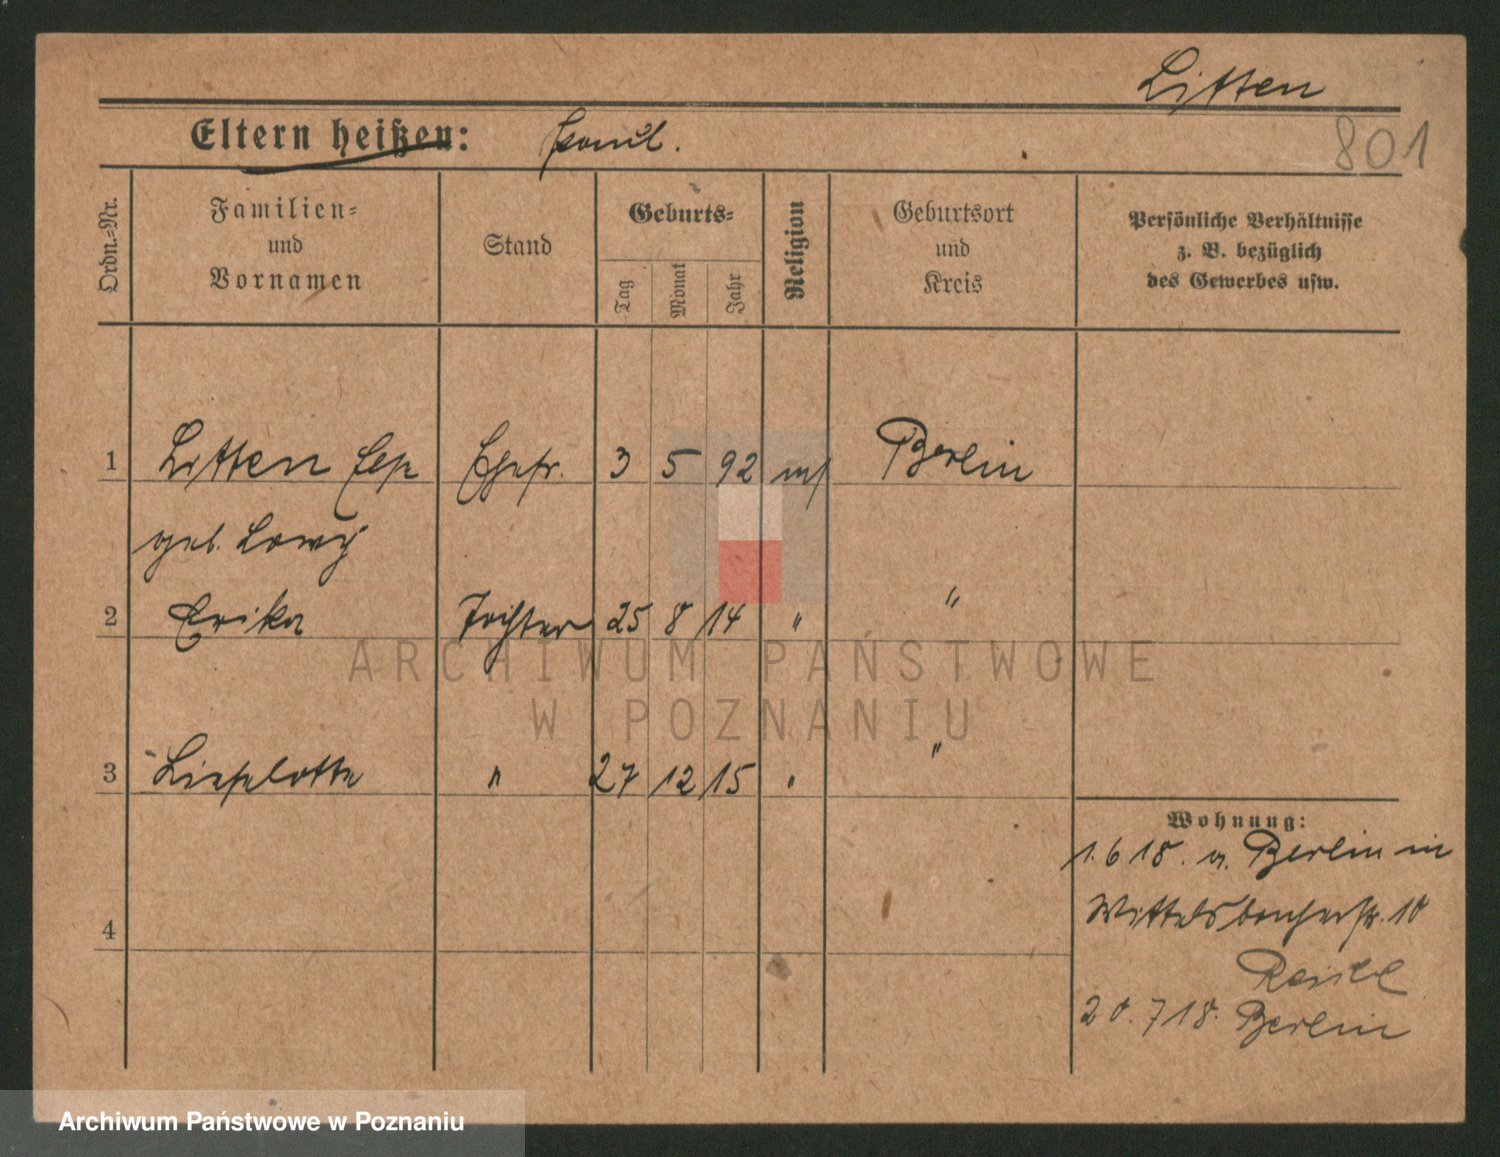 Litten
801
Eltern heißen: Paul.
Ordn.-Nr.
Familien-
und
Vornamen
Stand
Geburts-
Tag
Monat
Jahr
Religion
Geburtsort
und
Kreis
Persönliche Verhältnisse
z. B. bezüglich
des Gewerbes usw.
1 Litten Else Ehefr. 3 5 92 Berlin
geb. Lowy
2 Erika Tochter 25 8 14 " "
3 Lieselotte " 27 12 15 " "
4
Wohnung:
1. 6 18. a. Berlin in
Wittelsbacherstr. 10
20. 7 18. Berlin
ARCHIWUM PAŃSTWOWE
W POZNANIU
Archiwum Państwowe w Poznaniu